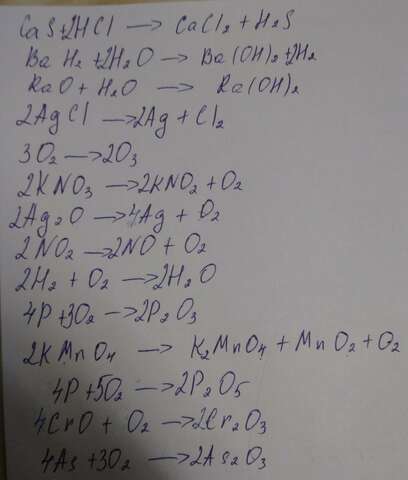 CaS+2HCl → CaCl₂ + H₂S
BaH₂ + 2H₂O → Ba(OH)₂ + 2H₂
RaO + H₂O → Ra(OH)₂
2AgCl → 2Ag + Cl₂
3O₂ → 2O₃
2KNO₃ → 2KNO₂ + O₂
2Ag₂O → 4Ag + O₂
2NO₂ → 2NO + O₂
2H₂ + O₂ → 2H₂O
4P + 3O₂ → 2P₂O₃
2KMnO₄ → K₂MnO₄ + MnO₂ + O₂
4P + 5O₂ → 2P₂O₅
4CrO + O₂ → 2Cr₂O₃
4As + 3O₂ → 2As₂O₃